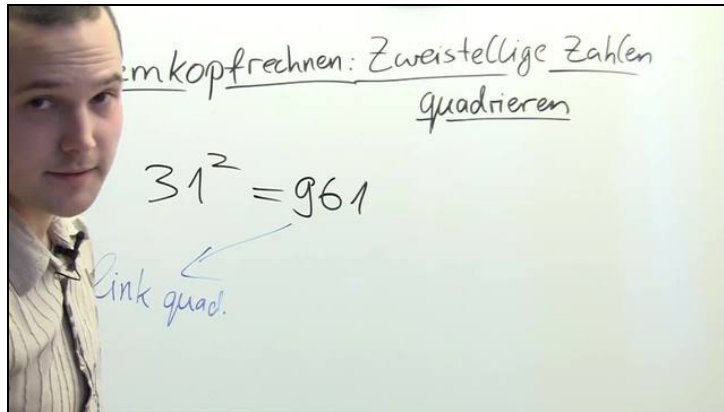 emkopfrechnen: Zweistellige Zahlen
quadrieren
31² = 961
link quad.